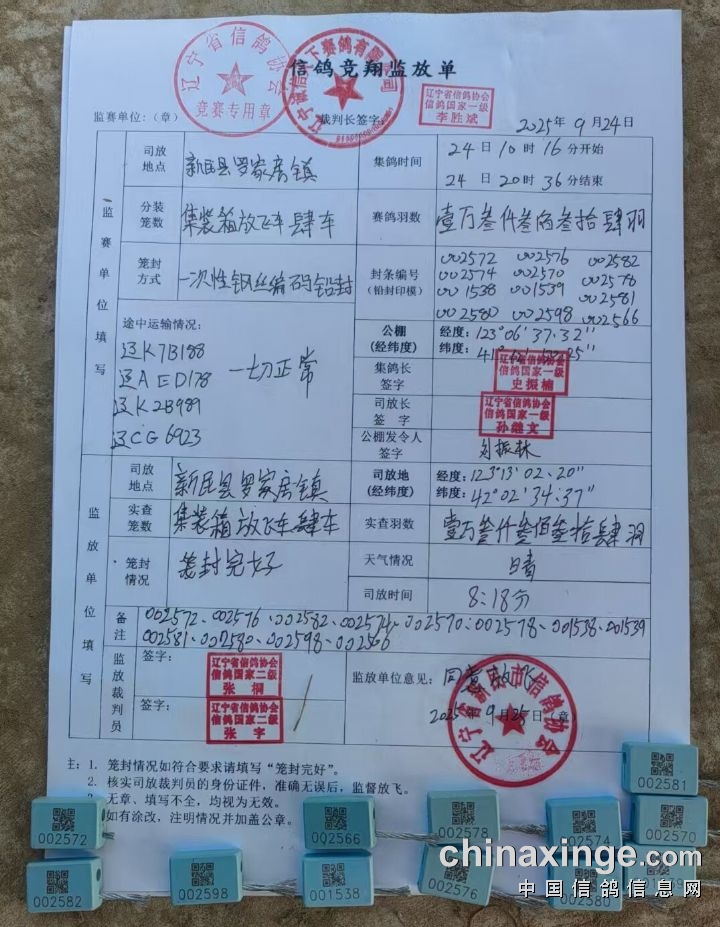 信鸽竞翔监放单
辽宁省信鸽协会
竞赛专用章
监赛单位:(章)
裁判长签字:
辽宁省信鸽协会
信鸽国家一级
李胜斌
2025年9月24日
监赛单位填写
司放地点
新民县罗家房镇
集鸽时间
24日10时16分开始
24日20时36分结束
分装笼数
集装箱放飞车肆车
赛鸽羽数
壹万叁仟叁佰叁拾肆羽
笼封方式
一次性钢丝编码铅封
封条编号
(铅封印模)
002572 002576 002582
002574 002570 002578
001538 001539 002581
002580 002598 002566
途中运输情况:
辽K7B188
辽AED178
辽K2B989
辽CG6923
一切正常
公棚
(经纬度)
经度:123°06'37.32"
纬度:
集鸽长签字
辽宁省信鸽协会
信鸽国家一级
史振楠
司放长签字
辽宁省信鸽协会
信鸽国家一级
孙继文
公棚发令人签字
刘振林
监放单位填写
司放地点
新民县罗家房镇
司放地
(经纬度)
经度:123°13'02.20"
纬度:42°02'34.37"
实查笼数
集装箱放飞车肆车
实查羽数
壹万叁仟叁佰叁拾肆羽
笼封情况
笼封完好
天气情况
晴
司放时间
8:18分
备注
002572、002576、002582、002574、002570、002578、001538、001539
002581、002580、002598、002566
监放裁判员
签字:
辽宁省信鸽协会
信鸽国家二级
张桐
签字:
辽宁省信鸽协会
信鸽国家二级
张宇
监放单位意见:
同意放飞
2025年9月25日(章)
注:1. 笼封情况如符合要求请填写“笼封完好”。
2. 核实司放裁判员的身份证件,准确无误后,监督放飞。
无章、填写不全,均视为无效。
如有涂改,注明情况并加盖公章。
002581
002572
002566
002578
002574
002570
002582
002598
001538
002576
002580
chinaxinge.com
中国信鸽信息网